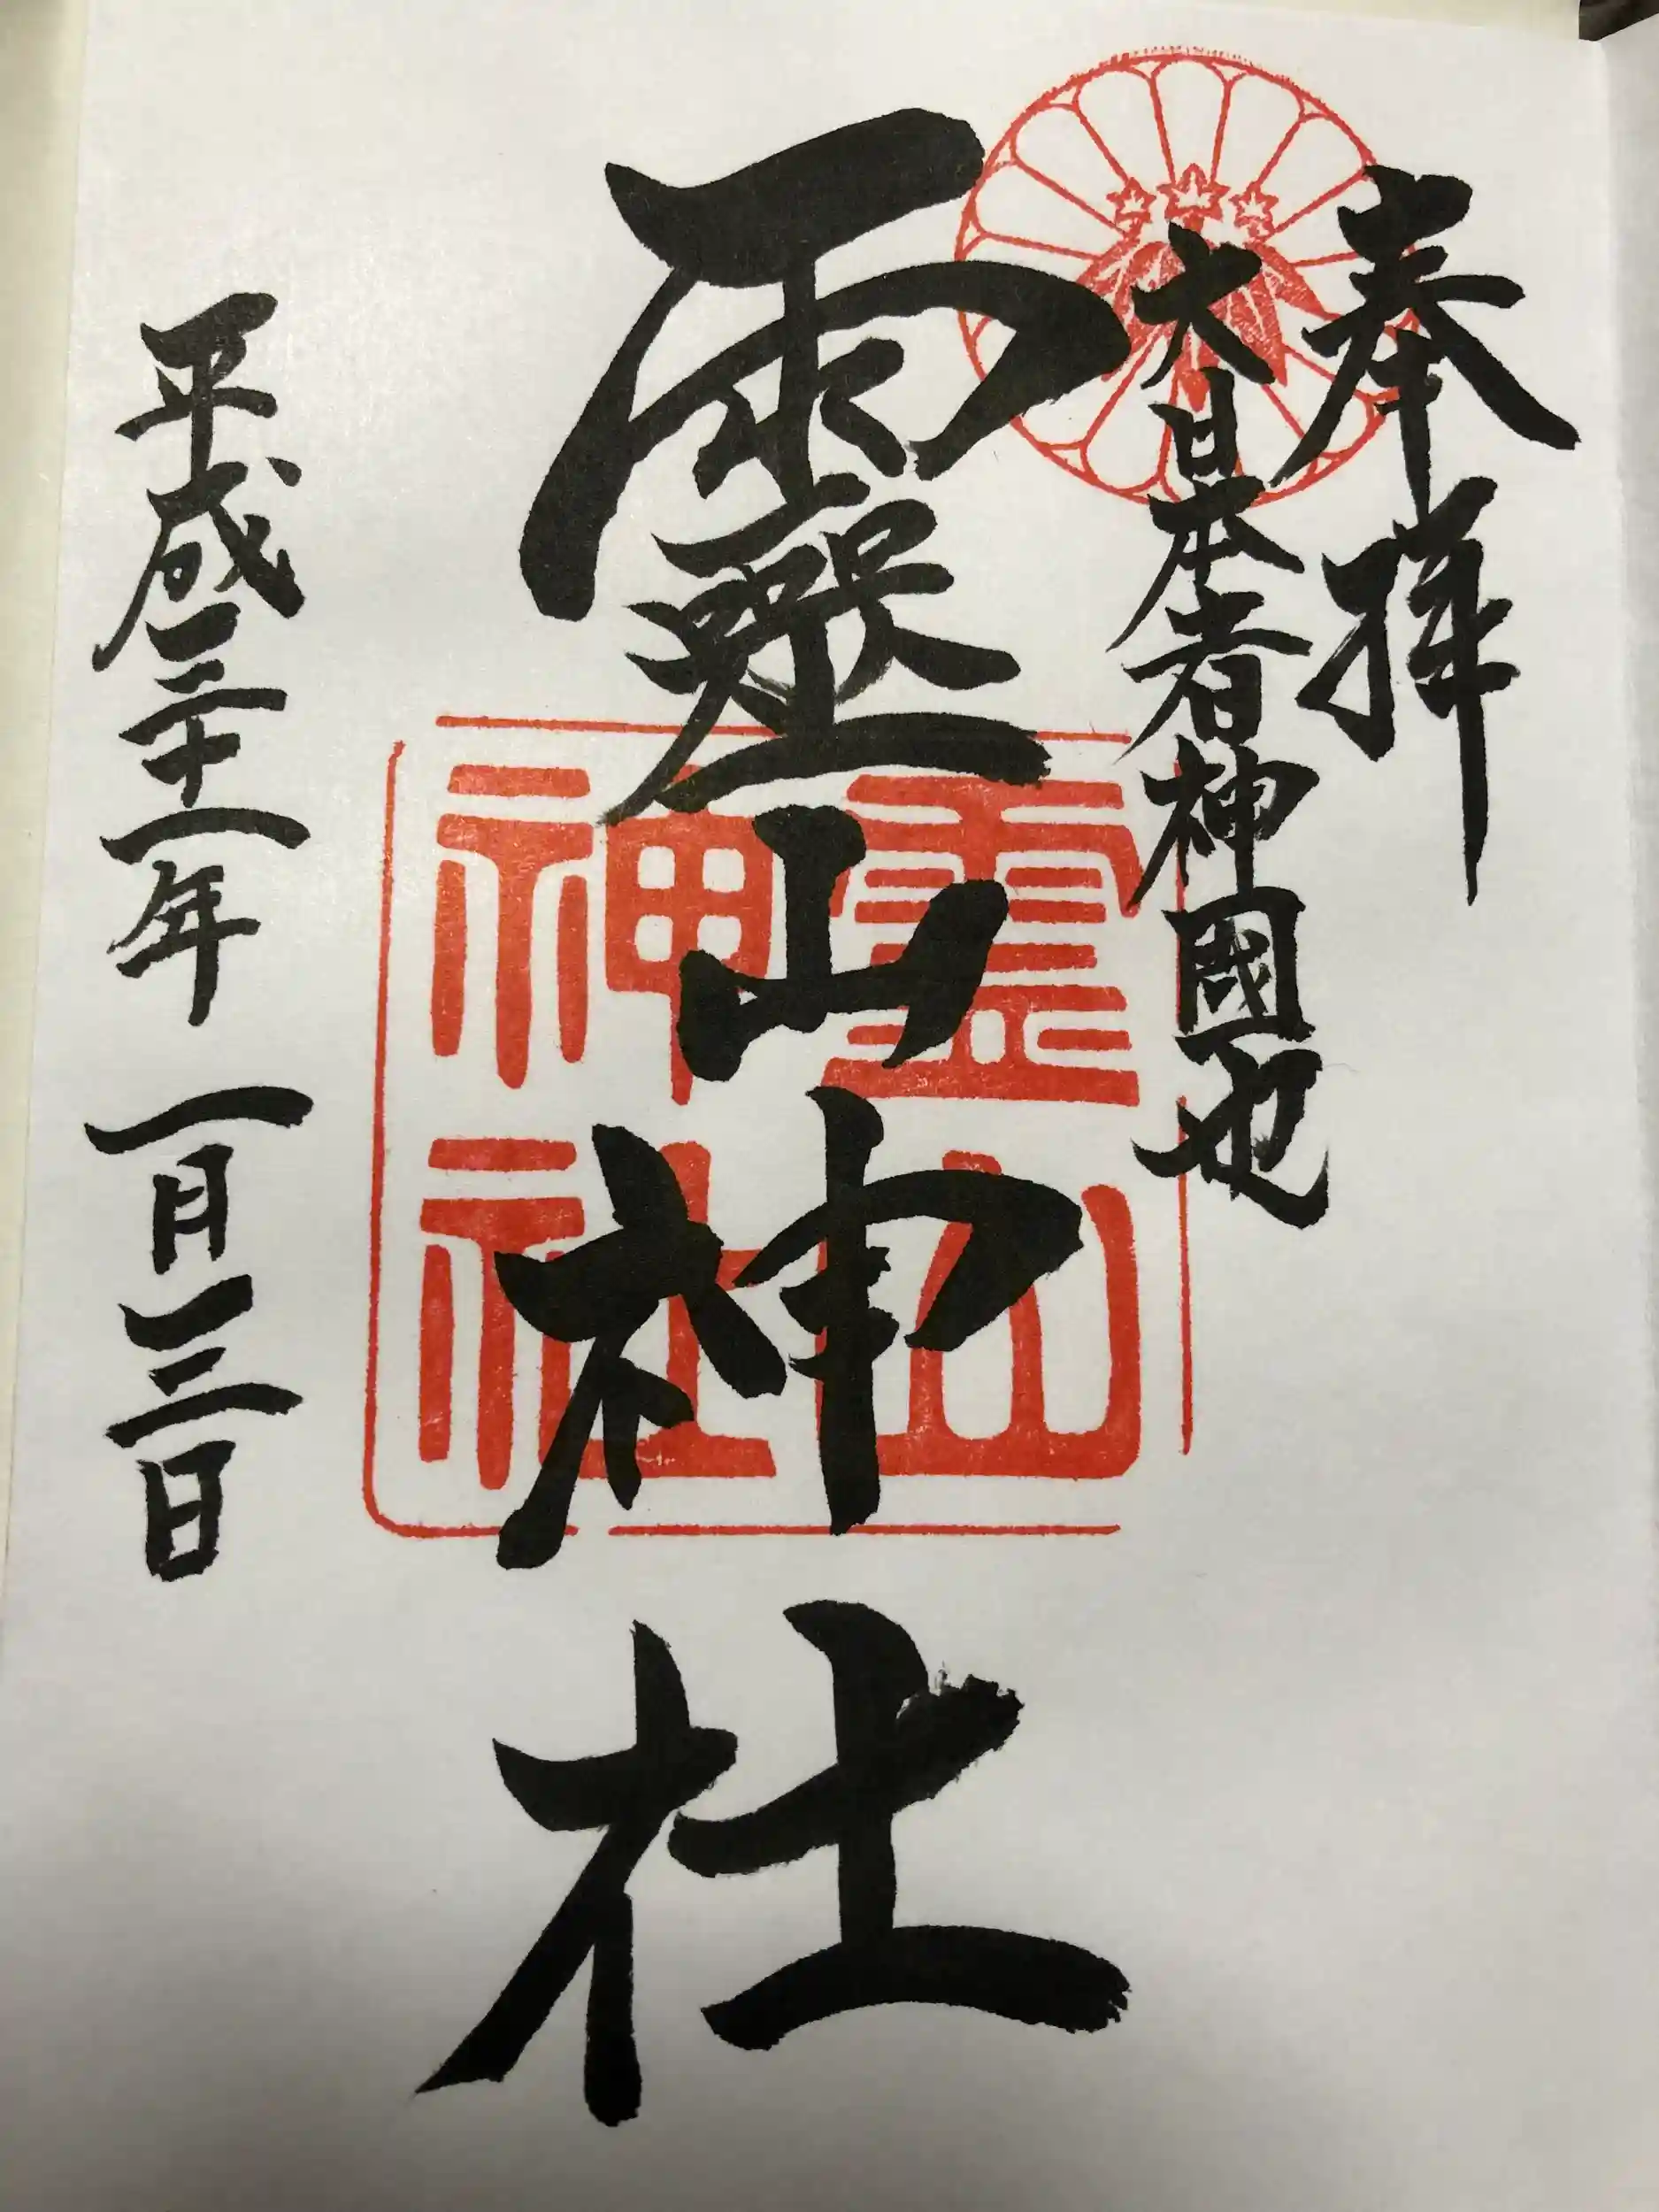 奉拝
大日本者神國也
霊山神社
霊山
神社
平成三十一年 一月三日